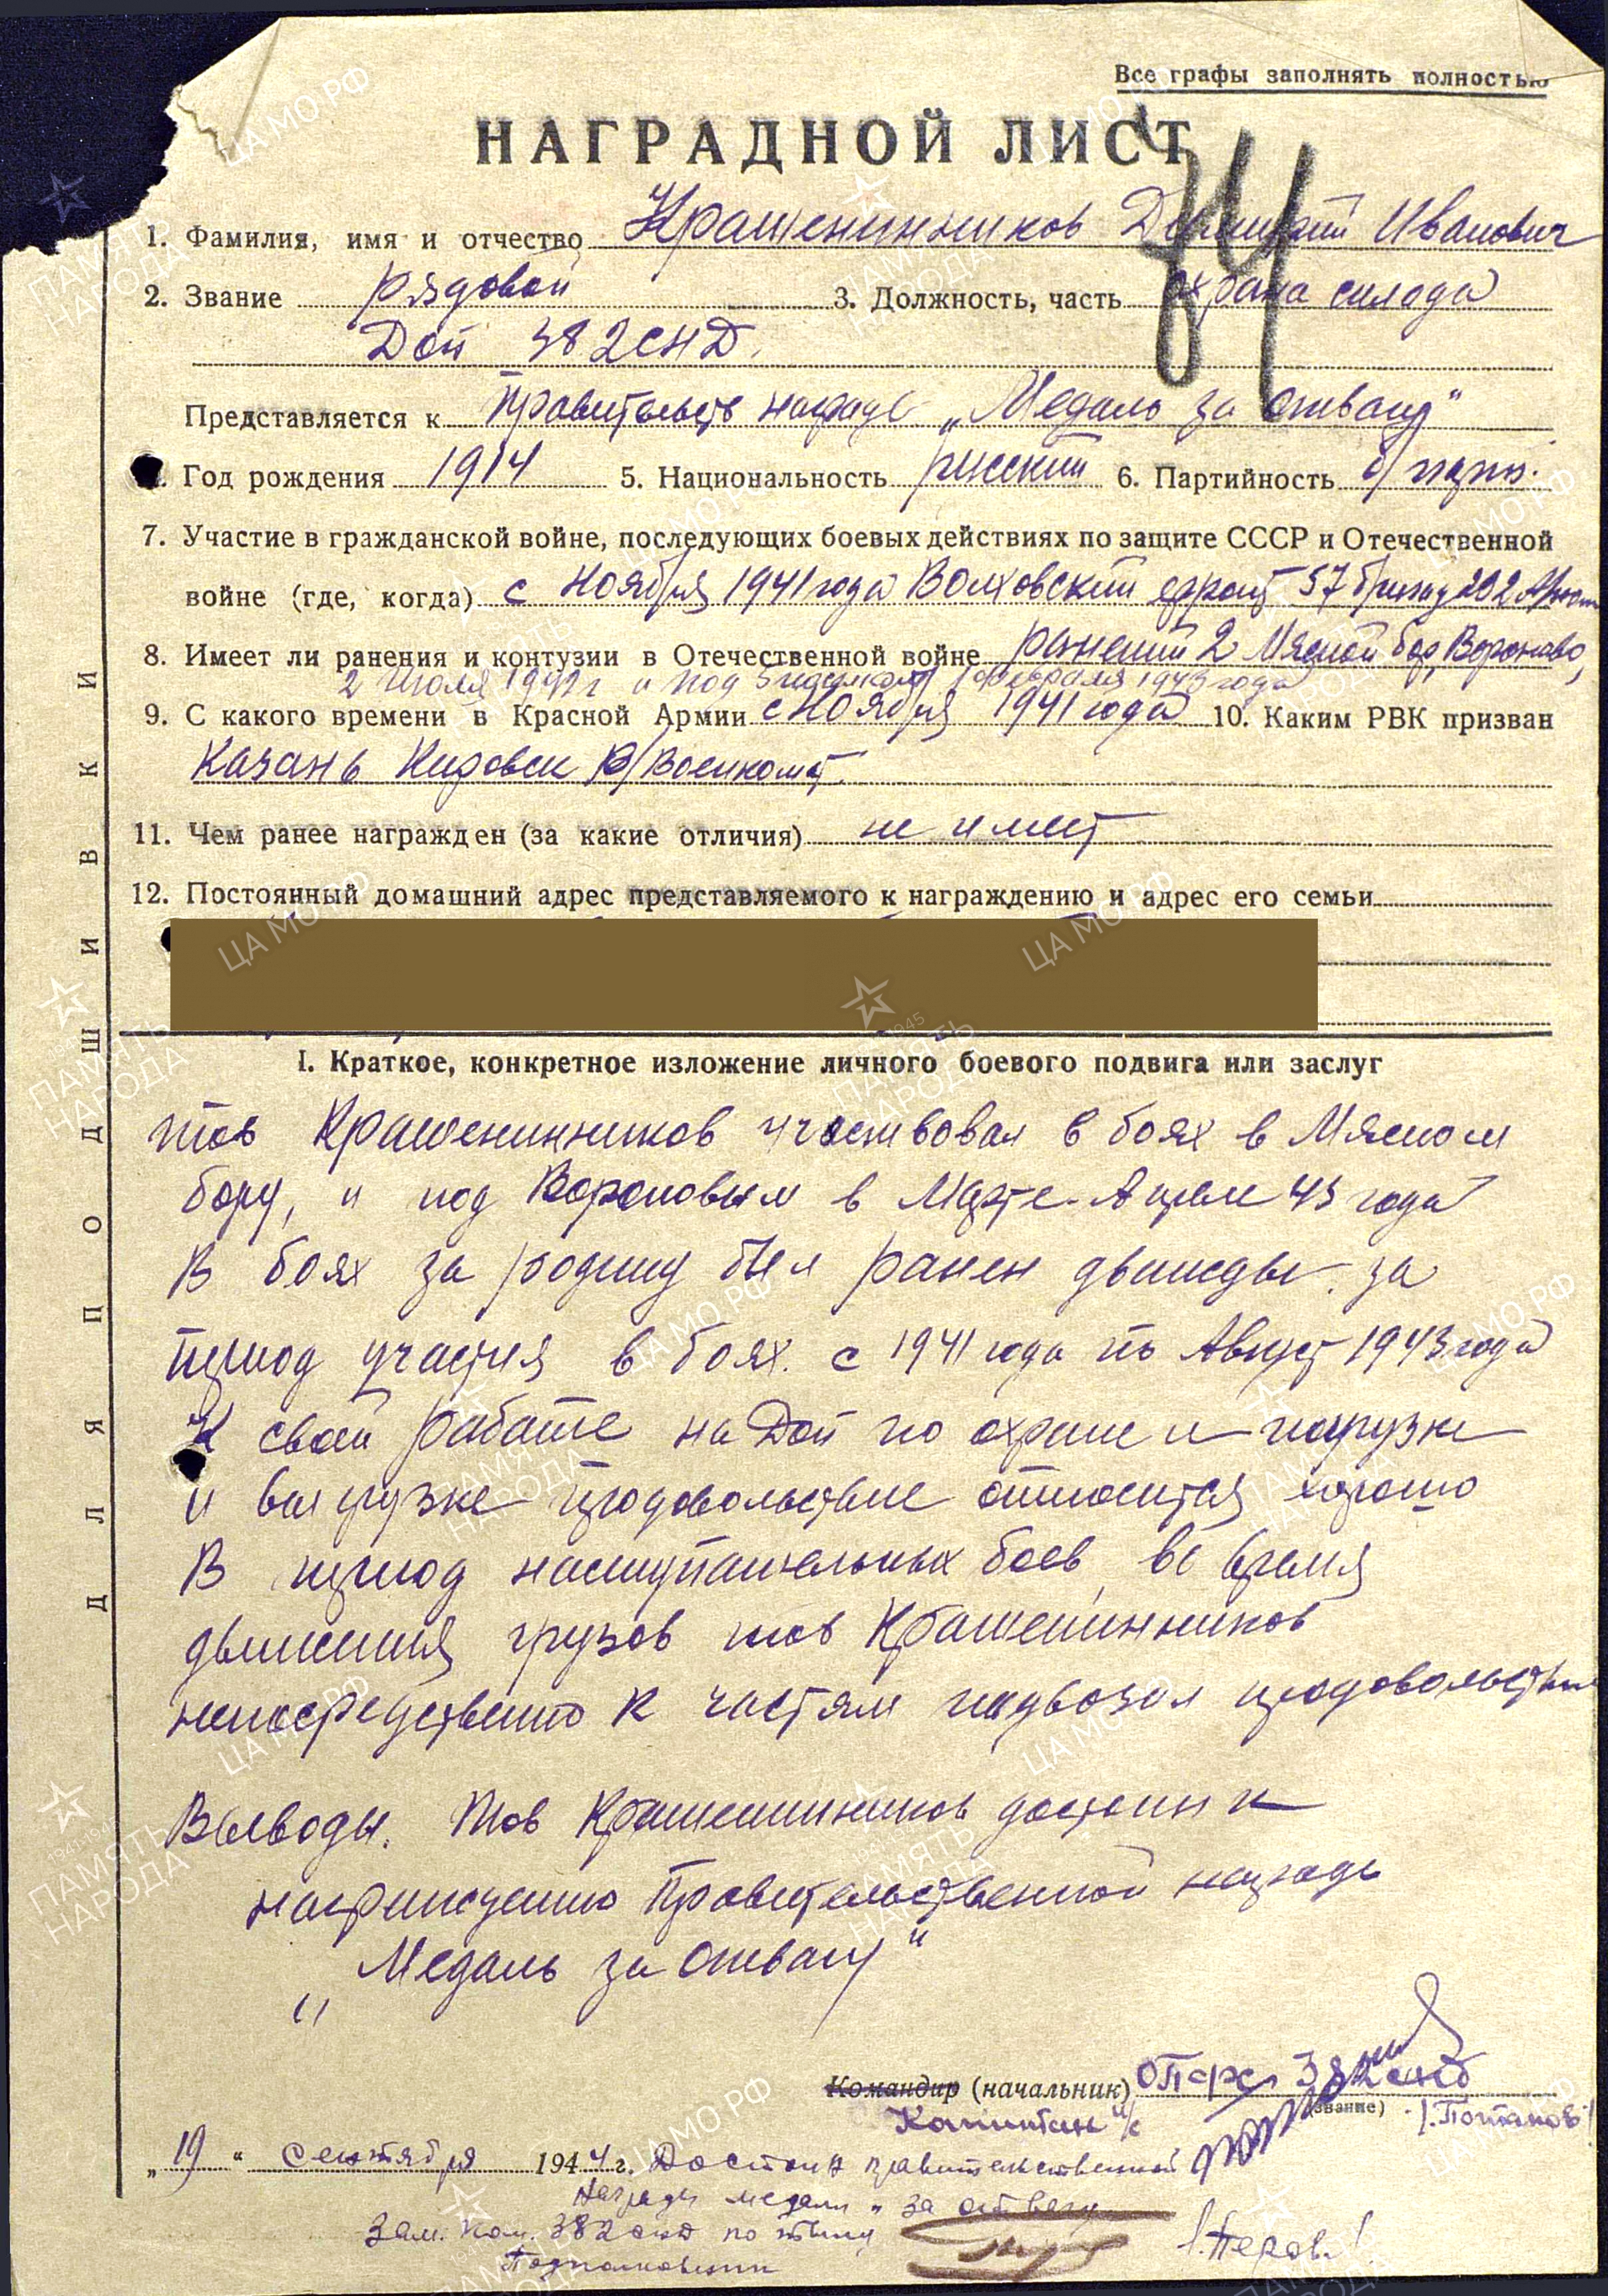 Все графы заполнять полностью
НАГРАДНОЙ ЛИСТ
74
1. Фамилия, имя и отчество Крашенинников Дмитрий Иванович
2. Звание рядовой 3. Должность, часть охрана склада
Доп 382 СНД.
Представляется к Правительств награде „Медаль за отвагу"
Год рождения 1914 5. Национальность русский 6. Партийность б/парт.
7. Участие в гражданской войне, последующих боевых действиях по защите СССР и Отечественной
войне (где, когда) с Ноября 1941 года Волховский фронт 57 бригад
8. Имеет ли ранения и контузии в Отечественной войне ранений 2 Мясной бор, Вороново,
2 Июля 1942 г и под 1943 года
9. С какого времени в Красной Армии с Ноября 1941 года 10. Каким РВК призван
Казань Кировск Р/Военкомат.
11. Чем ранее награжден (за какие отличия) не имеет
12. Постоянный домашний адрес представляемого к награждению и адрес его семьи
ДЛЯ ПОДШИВКИ
I. Краткое, конкретное изложение личного боевого подвига или заслуг
тов Крашенинников участвовал в боях в Мясном
бору, и под Вороновым в Марте-Апреле 43 года
В боях за родину был ранен дважды. за
период участия в боях. с 1941 года по Август 1943 года
К своей работе на Доп по охране и погрузке
и выгрузке продовольствие относится хорошо
В период наступательных боев, во время
движения грузов тов Крашенинников
непосредственно к частям подвозил продовольствие
Выводы. Тов Крашенинников достоин к
награждению Правительственной награде
„Медаль за отвагу"
Командир (начальник) 382 снд
(звание)
Капитан и/с /Потапов/
„19" сентября 1944 г. Достоин правительственной
награды медали „за отвагу
Зам. ком. 382 снд по тылу
Подполковник /Перов/
ЦА МО РФ
ПАМЯТЬ НАРОДА